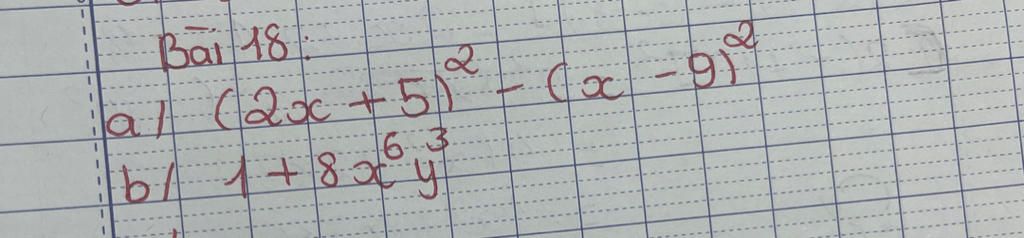 Bài 18:
a) (2x + 5)² - (x - 9)²
b) 1 + 8x⁶y³